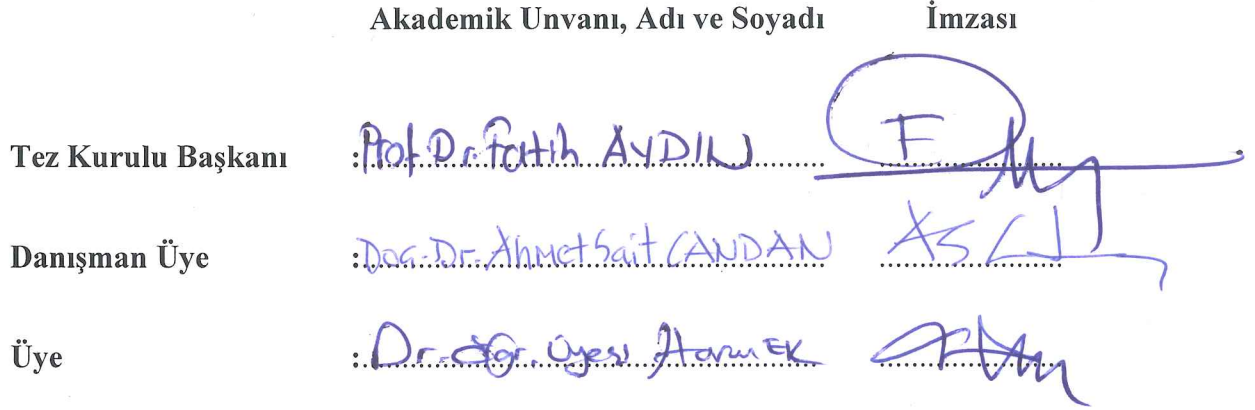 Akademik Unvanı, Adı ve Soyadı İmzası
Tez Kurulu Başkanı : Prof. Dr. Fatih AYDIN F
Danışman Üye : Doç. Dr. Ahmet Sait CANDAN
Üye : Dr. Öğr. Üyesi EK